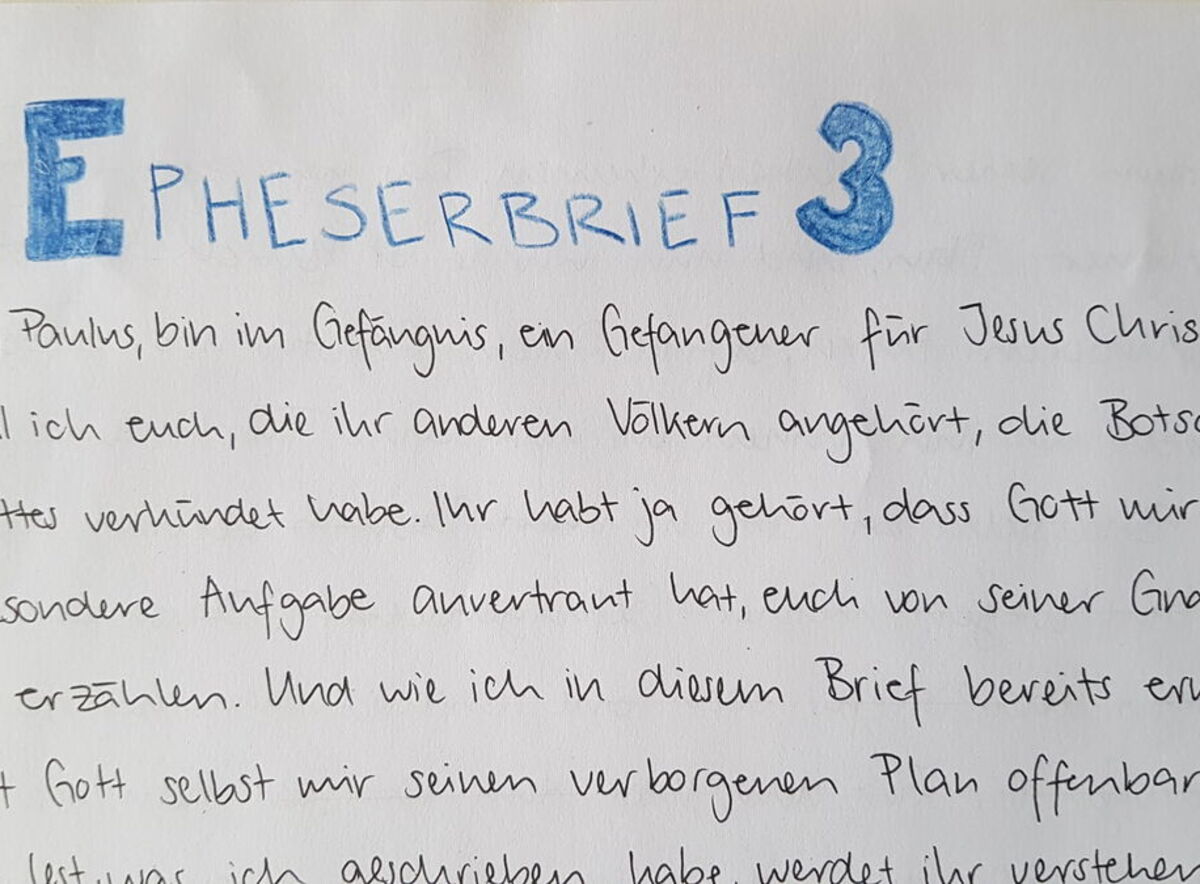 EPHESERBRIEF 3
Paulus, bin im Gefängnis, ein Gefangener für Jesus Chris
l ich euch, die ihr anderen Völkern angehört, die Botsc
ttes verkündet habe. Ihr habt ja gehört, dass Gott mir
sondere Aufgabe anvertraut hat, euch von seiner Gna
erzählen. Und wie ich in diesem Brief bereits erw
t Gott selbst mir seinen verborgenen Plan offenbar
lest, was ich geschrieben habe, werdet ihr verstehen